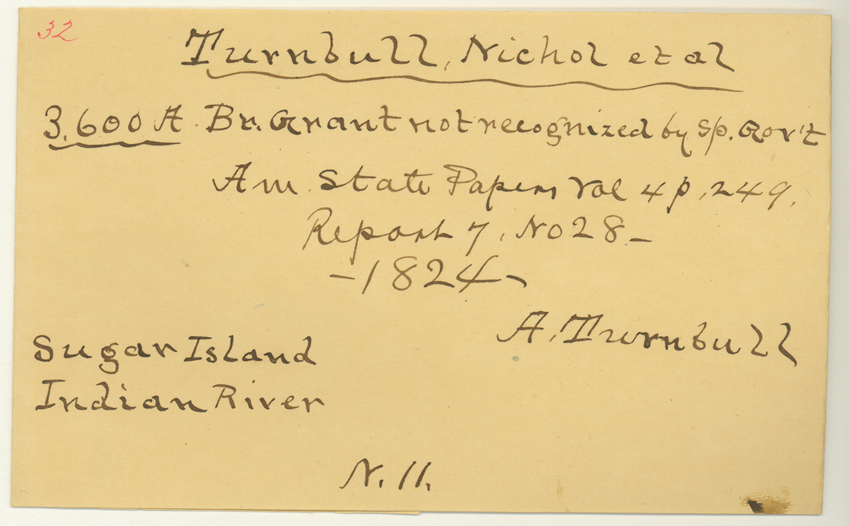 32
Turnbull, Nichol et al
3,600 A. Br. Grant not recognized by Sp. Gov't
Am. State Papers Vol 4 p. 249.
Report 7, No 28 -
- 1824 -
A. Turnbull
Sugar Island
Indian River
N. 11.